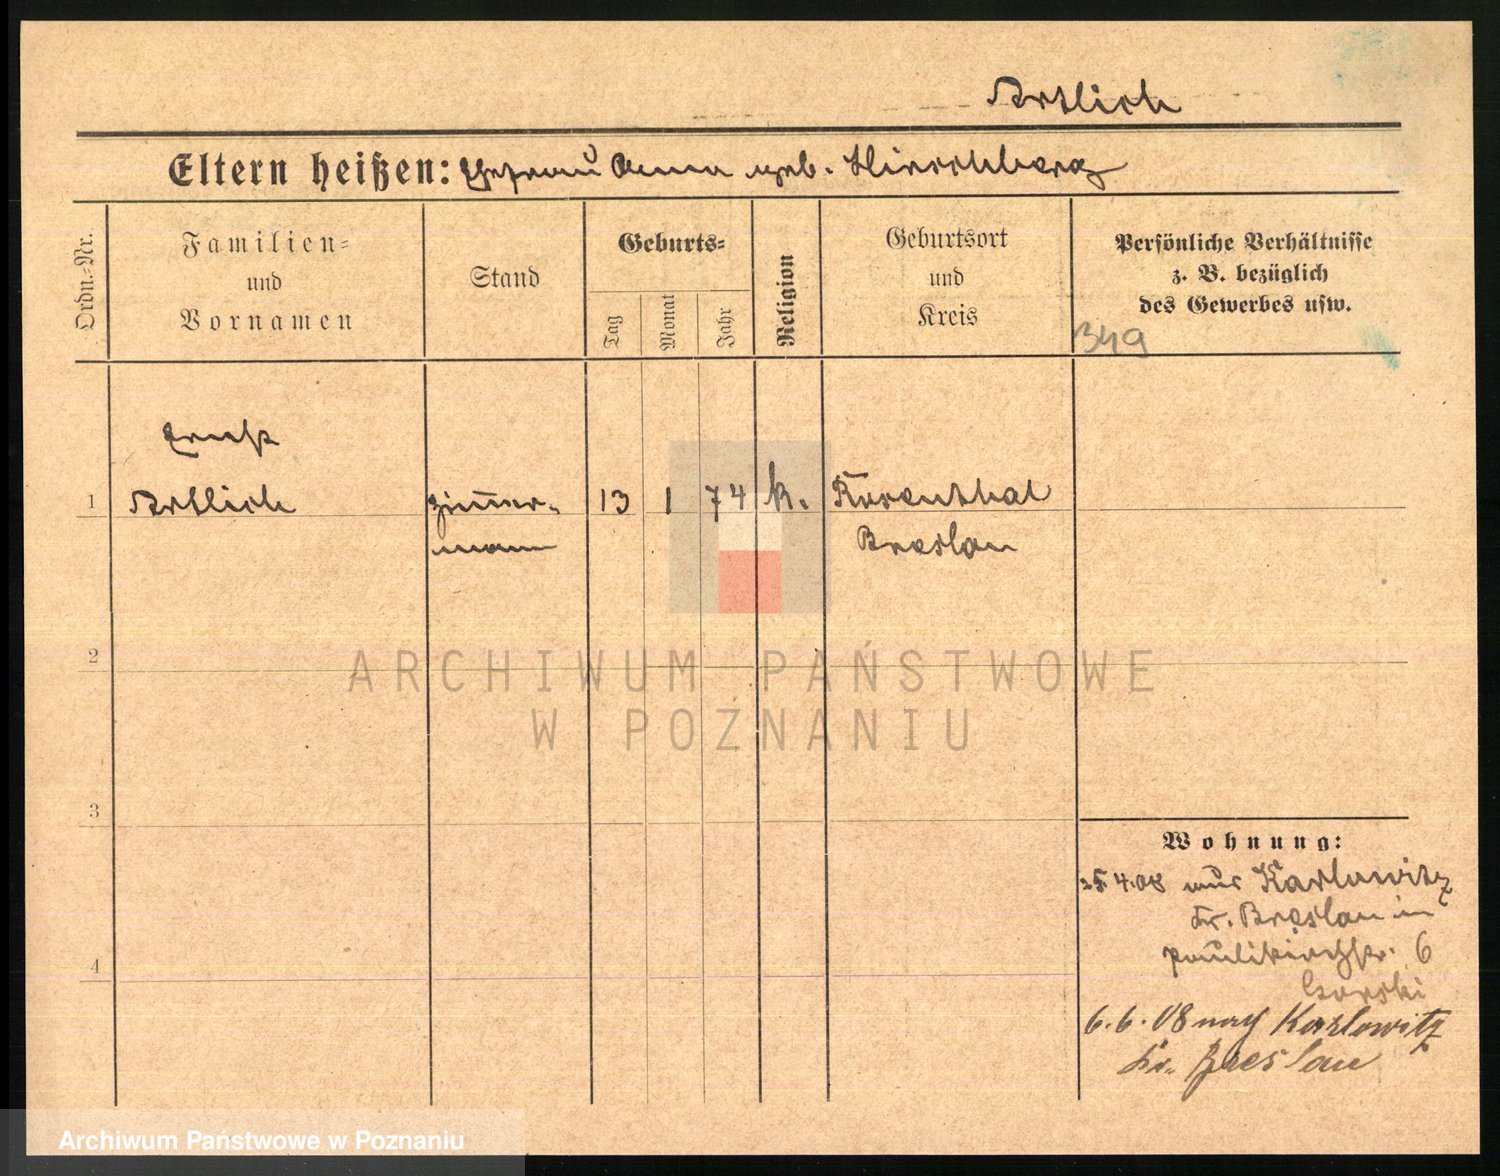 Artlich
Eltern heißen: Ehefrau Anna geb. Hirschberg
Ordn.-Nr.
Familien-
und
Vornamen
Stand
Geburts-
Tag
Monat
Jahr
Religion
Geburtsort
und
Kreis
Persönliche Verhältnisse
z. B. bezüglich
des Gewerbes usw.
349
Ernst
1 Artlich Zimmer- 13 1 74 k. Rosenthal
mann Breslau
2
ARCHIWUM PAŃSTWOWE
W POZNANIU
3
Wohnung:
25.4.08 aus Karlowitz
Kr. Breslau in
4
Paulikirchstr. 6
Gorski
6.6.08 nach Karlowitz
Kr. Breslau
Archiwum Państwowe w Poznaniu